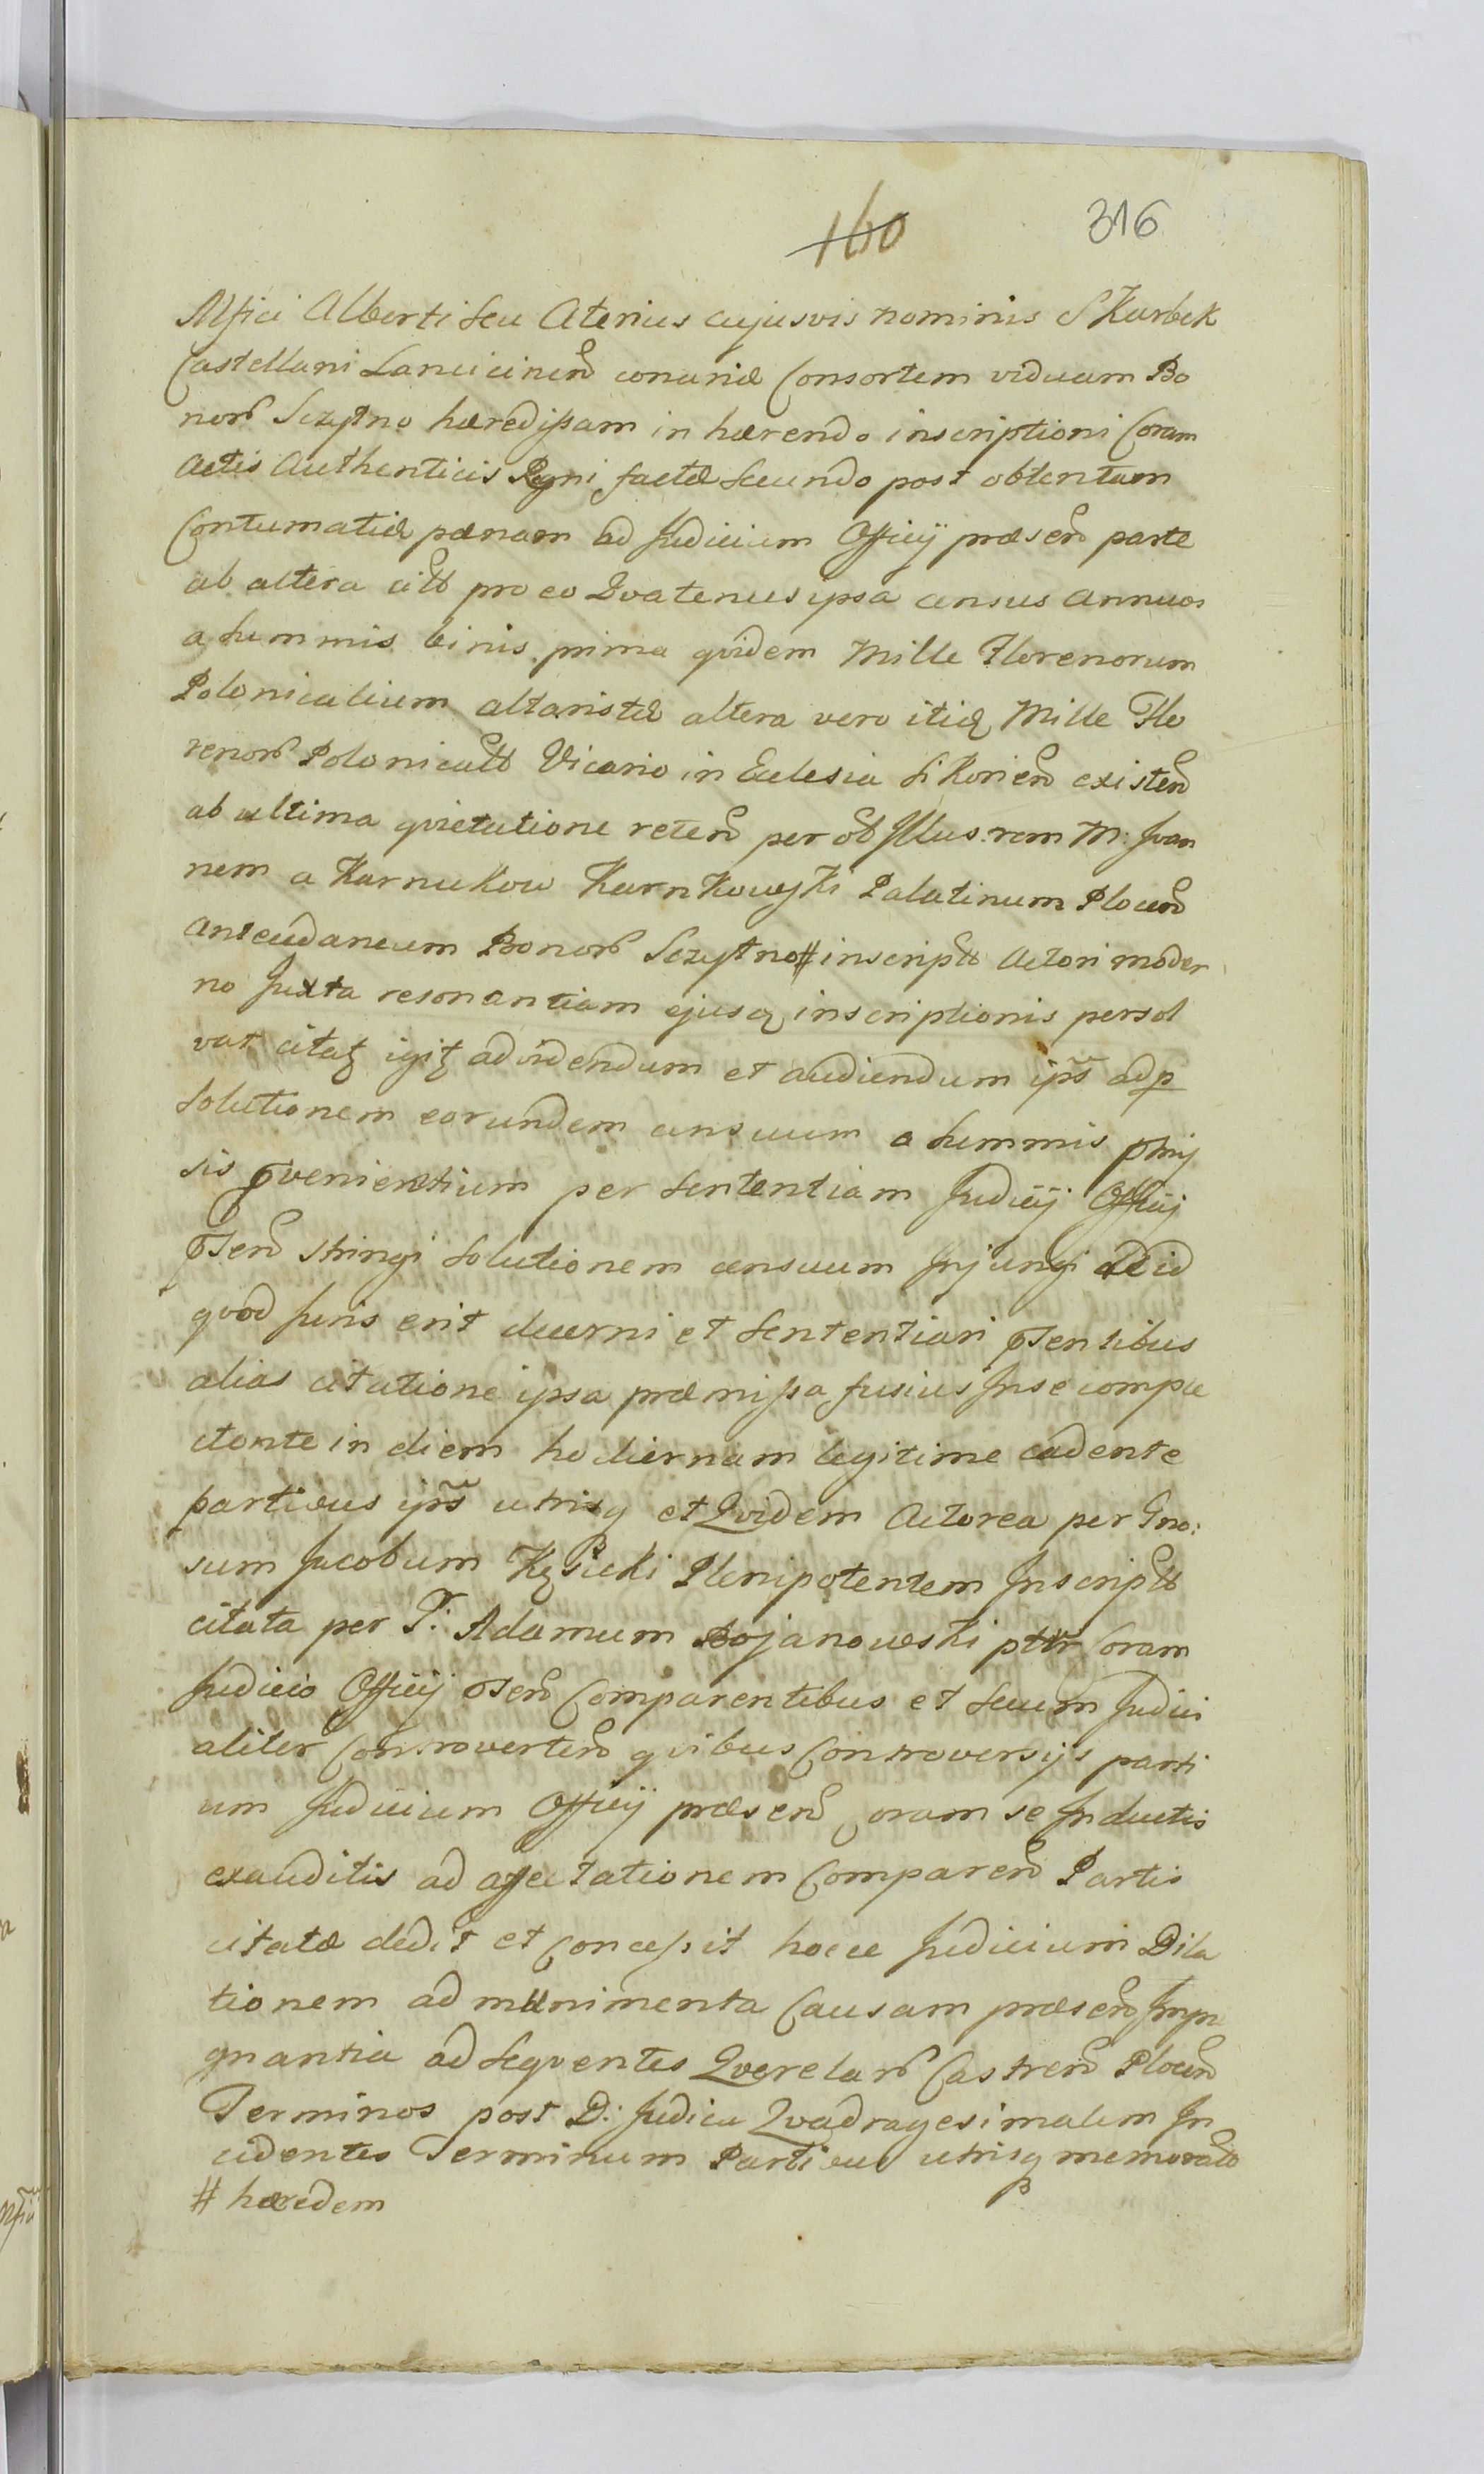 160 316
Mfici Alberti seu Aterius cujusvis nominis SKarbek
Castellani Lanciciensd conariæ Consortem viduam Bo
norb Sczytno hæredißam in hærendo inscriptioni Coram
Actis Authenticis Regni factæ secundo post obtentam
Contumatiæ pænam ad Judicium Officij præsend parte
ab altera citt pro eo Qvatenus ipsa census annuos
a summis binis prima qvidem Mille Florenorum
Polonicalium altaristæ altera vero itidq Mille Flo
renorb Polonicalb Vicario in Ecclesia SiKoriend existend
ab ultima qvietatione retend per ob Jllus: rem M: Joan
nem a KarnuKow KarnKowsKi Palatinum Plocend
antecedaneum Bonorb Sczytno # inscriptb Actori moder
no Juxta resonantiam ejusq inscriptionis persol
vat citatq igitq ad videndum et audiendum ips ad p
solutionem eorundem censuum a summis pmij
sis pvenientium per sententiam Judicij Officij
psend stringi solutionem censuum Jnjungi ad id
qvod Juris erit decerni et sententiari psentibus
alias citatione ipsa præmißa fusius Jn se comple
ctente in diem hodiernam legitime cadente
partibus ips utrisq et Qvidem Actorea per Gno:
sum Jacobum Kęsicki Plenipotentem Jnscriptb
citata per G: Adamum Bojanowski pttr Coram
Judicio Officij psend Comparentibus et secum Judici
aliter Controvertend qvibus Controversijs parti
um Judicium Officij præsend coram se Jnductis
exauditis ad affectationem Comparend Partis
citatæ dedit et Conceßit hocce Judicium Dila
tionem ad munimenta Causam præsend Jmpu
gnantia ad seqventes Qverelarb Castrend Plocend
Terminos post D: Judica Qvadragesimalem Jn
cidentes Terminum Partibus utrisq memoratb
# hæredem